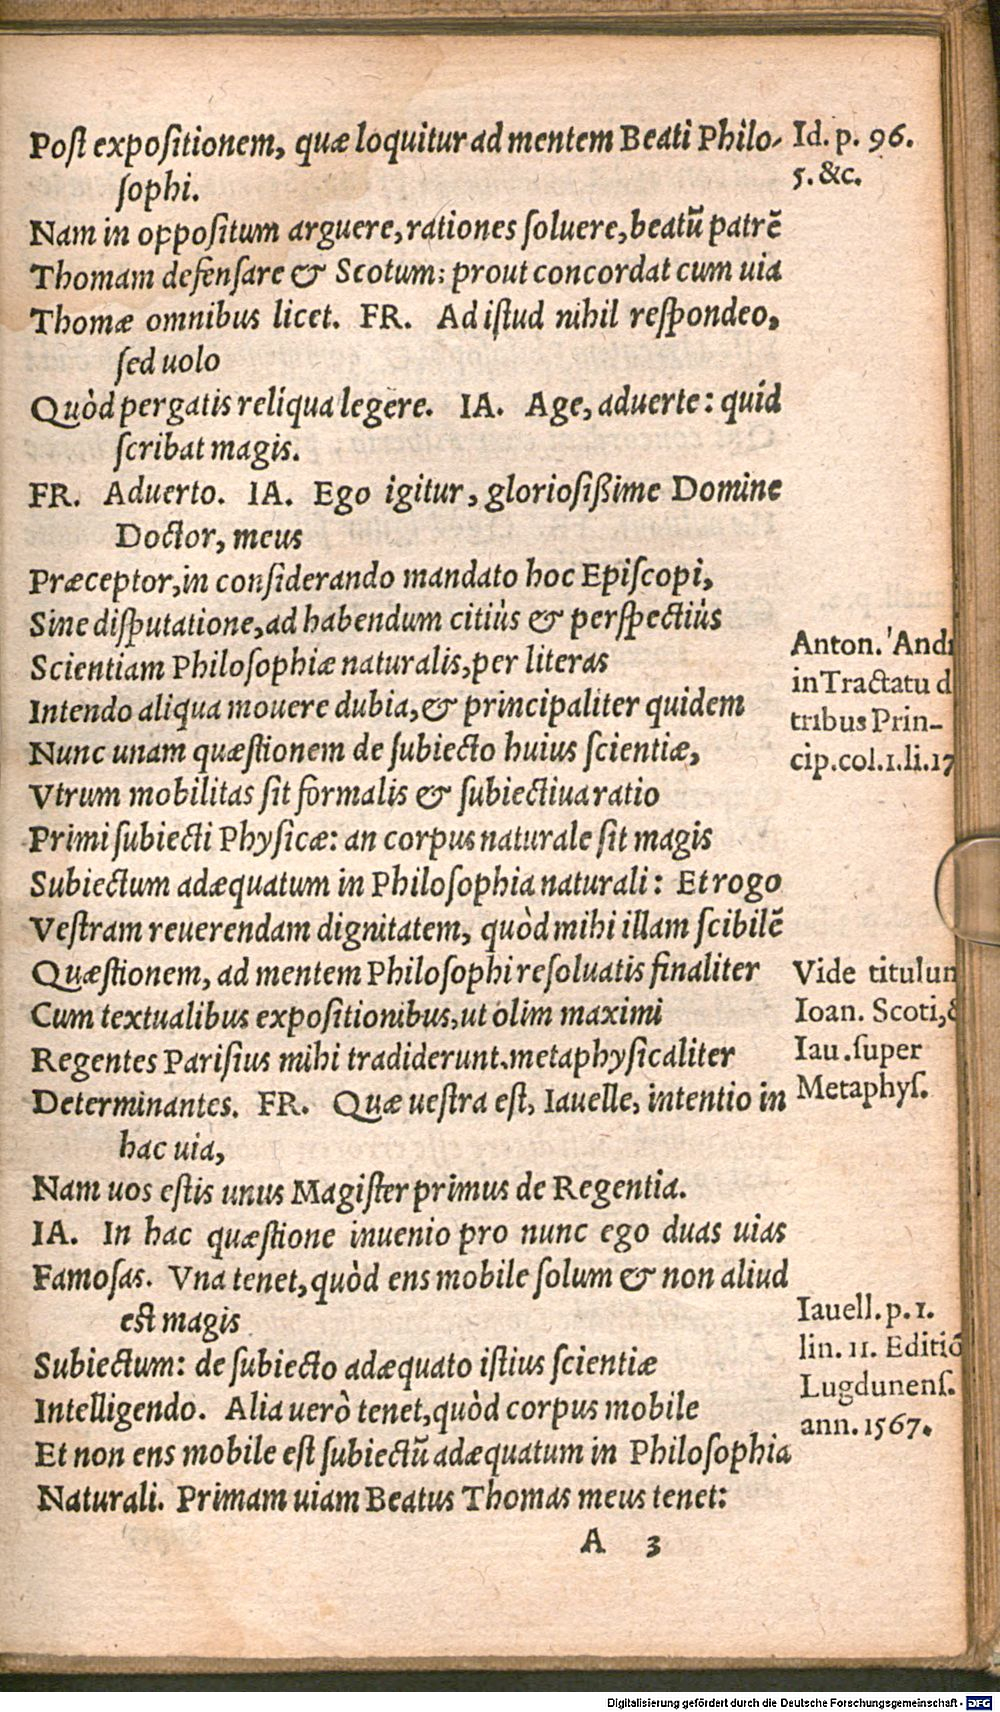 Post expositionem, quæ loquitur ad mentem Beati Philo-
sophi.
Nam in oppositum arguere, rationes soluere, beatū patrē
Thomam defensare & Scotum: prout concordat cum uia
Thomæ omnibus licet. FR. Ad istud nihil respondeo,
sed uolo
Quòd pergatis reliqua legere. IA. Age, aduerte: quid
scribat magis.
FR. Aduerto. IA. Ego igitur, gloriosißime Domine
Doctor, meus
Præceptor, in considerando mandato hoc Episcopi,
Sine disputatione, ad habendum citiùs & perspectiùs
Scientiam Philosophiæ naturalis, per literas
Intendo aliqua mouere dubia, & principaliter quidem
Nunc unam quæstionem de subiecto huius scientiæ,
Vtrum mobilitas sit formalis & subiectiua ratio
Primi subiecti Physicæ: an corpus naturale sit magis
Subiectum adæquatum in Philosophia naturali: Et rogo
Vestram reuerendam dignitatem, quòd mihi illam scibilē
Quæstionem, ad mentem Philosophi resoluatis finaliter
Cum textualibus expositionibus, ut olim maximi
Regentes Parisius mihi tradiderunt, metaphysicaliter
Determinantes. FR. Quæ uestra est, Iauelle, intentio in
hac uia,
Nam uos estis unus Magister primus de Regentia.
IA. In hac quæstione inuenio pro nunc ego duas uias
Famosas. Vna tenet, quòd ens mobile solum & non aliud
est magis
Subiectum: de subiecto adæquato istius scientiæ
Intelligendo. Alia uerò tenet, quòd corpus mobile
Et non ens mobile est subiectū adæquatum in Philosophia
Naturali. Primam uiam Beatus Thomas meus tenet:
A 3
Id. p. 96.
5. &c.
Anton. Andr
in Tractatu d
tribus Prin-
cip. col. 1. li. 17
Vide titulum
Ioan. Scoti, &
Iau. super
Metaphys.
Iauell. p. 1.
lin. 11. Editiō
Lugdunens.
ann. 1567.
Digitalisierung gefördert durch die Deutsche Forschungsgemeinschaft - DFG